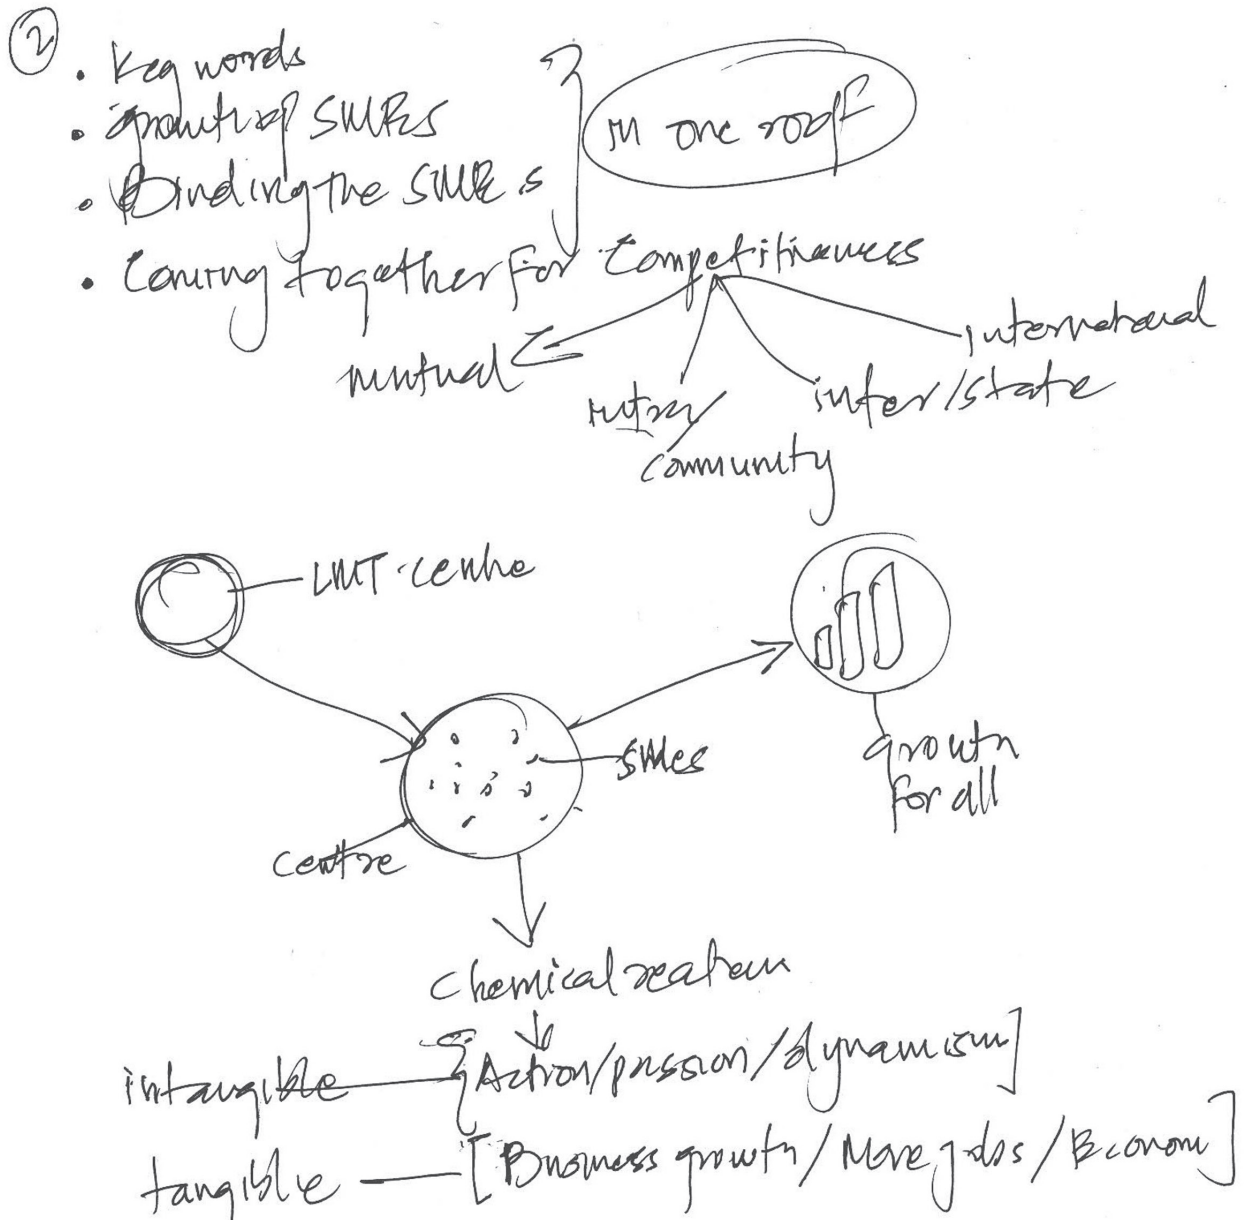 2
• Key words
• growth of SMEs
• Binding the SMEs
in one roof
• Coming together for Competitiveness
mutual
intra/
community
inter/state
international
LMT-centre
SMEs
centre
growth
for all
Chemical reation
intangible — {Action/passion/dynamism]
tangible — [Business growth/More jobs/Econom]